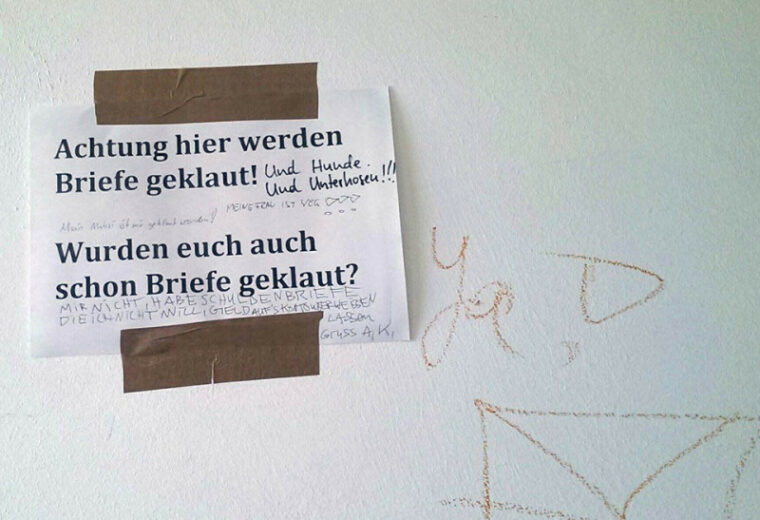 Achtung hier werden
Briefe geklaut! Und Hunde.
Und Unterhosen!!!
MEINE FRAU IST WEG
Mein Nutella ist mir geklaut worden!
Wurden euch auch
schon Briefe geklaut?
MIR NICHT, HABE SCHULDENBRIEFE
DIE ICH NICHT WILL, GELD AUFS KONTO
LASSEN
GRUSS A.K.